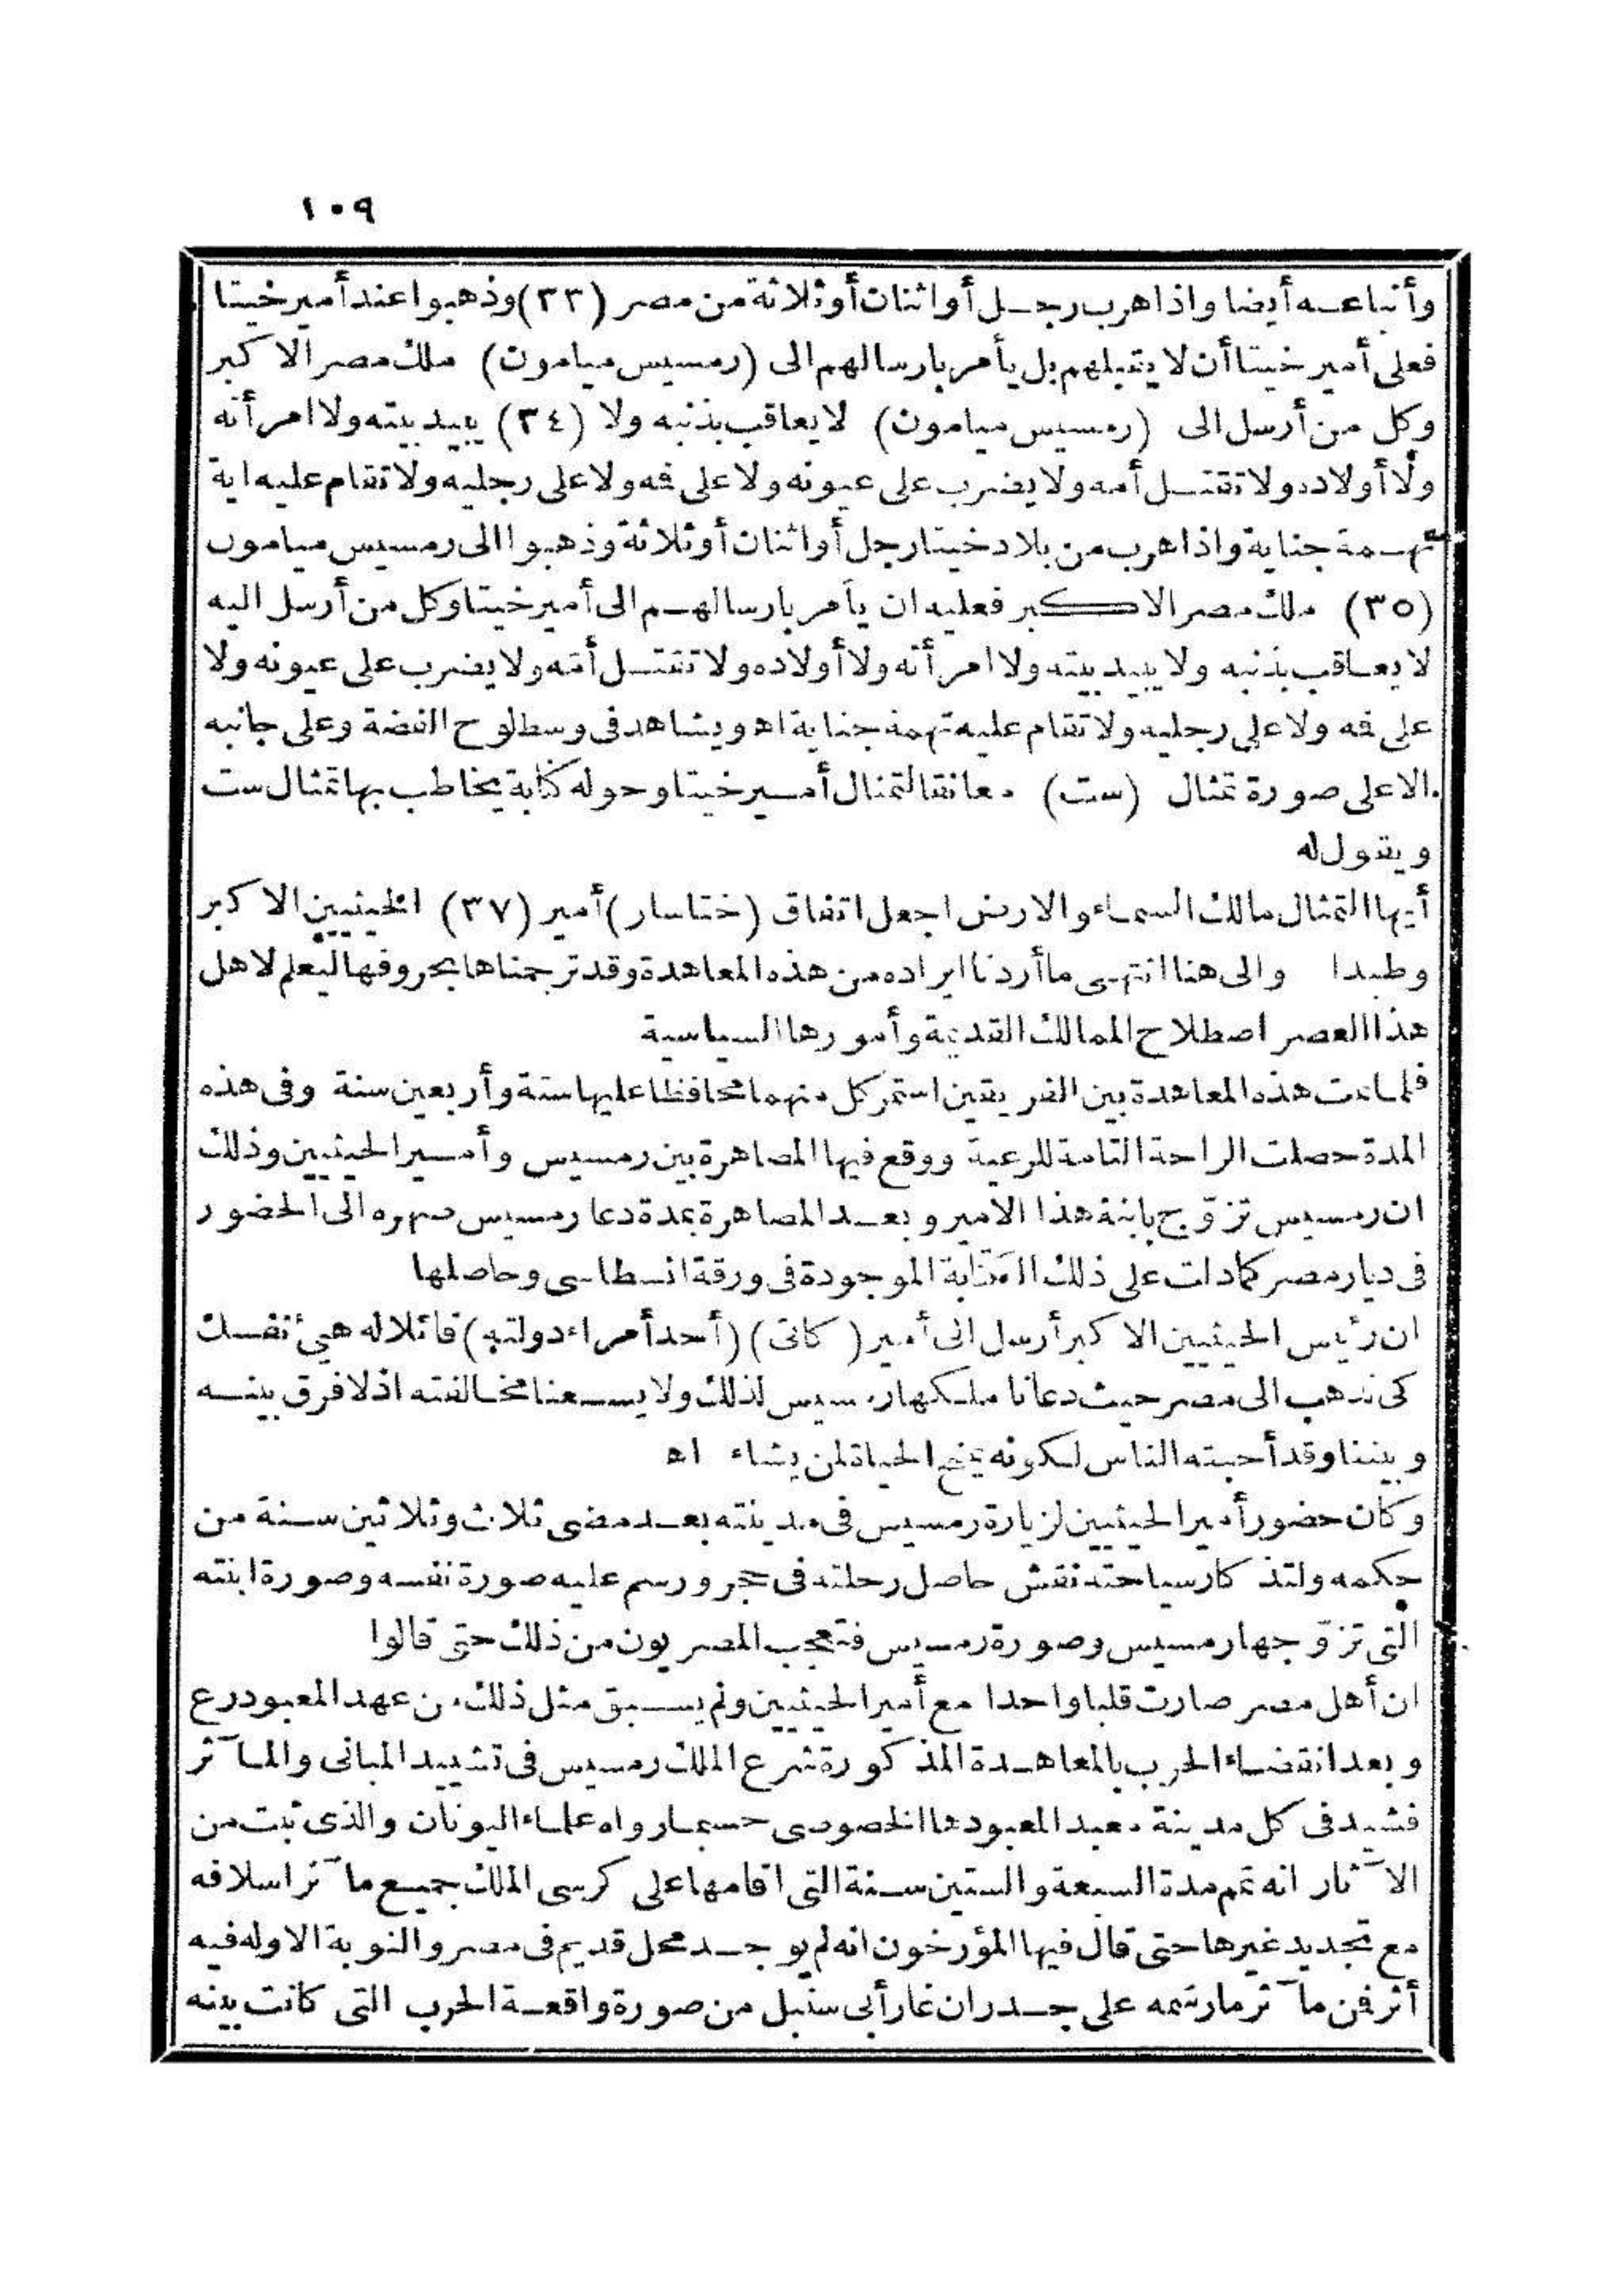 ١٠٩
وأتباعه أيضا واذا هرب رجل أو اثنان أو ثلاثة من مصر (٣٣) وذهبوا عند أمير خيتا
فعلى أمير خيتا أن لا يقبلهم بل يأمر بارسالهم الى (رمسيس ميامون) ملك مصر الاكبر
وكل من أرسل الى (رمسيس ميامون) لا يعاقب بذنبه ولا (٣٤) يبيد بيته ولا امرأته
ولا أولاده ولا تقتل أمه ولا يضرب على عيونه ولا على فه ولا على رجليه ولا تقام عليه اية
تهمة جناية واذا هرب من بلاد خيتا رجل أو اثنان أو ثلاثة وذهبوا الى رمسيس ميامون
(٣٥) ملك مصر الاكبر فعليه ان يأمر بارسالهم الى أمير خيتا وكل من أرسل اليه
لا يعاقب بذنبه ولا يبيد بيته ولا امرأته ولا أولاده ولا تقتل أمّه ولا يضرب على عيونه ولا
على فه ولا على رجليه ولا تقام عليه تهمة جناية اه ويشاهد فى وسط لوح الفضة وعلى جانبه
الاعلى صورة تمثال (ست) معانقا لتمثال أمير خيتا وحوله كتابة يخاطب بها تمثال ست
ويقول له
أيها التمثال مالك السماء والارض اجعل اتفاق (ختاسار) أمير (٣٧) الخيثيين الاكبر
وطيدا والى هنا انتهى ما أردنا ايراده من هذه المعاهدة وقد ترجمناها بحروفها ليعلم لاهل
هذا العصر اصطلاح الممالك القديمة وأمورها السياسية
فلما تمت هذه المعاهدة بين الفريقين استمر كل منهما محافظا عليها ستة وأربعين سنة وفى هذه
المدة حصلت الراحة التامة للرعية ووقع فيها المصاهرة بين رمسيس وأمير الحيثيين وذلك
ان رمسيس تزوّج بابنة هذا الامير وبعد المصاهرة بمدة دعا رمسيس صهره الى الحضور
فى ديار مصر كما دلت على ذلك الكتابة الموجودة فى ورقة انسطاسى وحاصلها
ان رئيس الحيثيين الاكبر أرسل الى أمير (كاتى) (أحد أمراء دولته) قائلا له هيئ نفسك
كى نذهب الى مصر حيث دعانا ملكها رمسيس لذلك ولا يسعنا مخالفته اذ لا فرق بينه
وبيننا وقد أحبته الناس لكونه يمنح الحياة لمن يشاء اه
وكان حضور أمير الحيثيين لزيارة رمسيس فى مدينته بعد مضى ثلاث وثلاثين سنة من
حكمه ولتذكار سياحته نقش حاصل رحلته فى حجر ورسم عليه صورة نفسه وصورة ابنته
التى تزوّجها رمسيس وصورة رمسيس فتعجب المصريون من ذلك حتى قالوا
ان أهل مصر صارت قلبا واحدا مع أمير الحيثيين ولم يسبق مثل ذلك من عهد المعبود رع
وبعد انقضاء الحرب بالمعاهدة المذكورة شرع الملك رمسيس فى تشييد المبانى والمآثر
فشيد فى كل مدينة معبد المعبودها الخصوصى حسبما رواه علماء اليونان والذى ثبت من
الآثار انه تمم مدة السبعة والستين سنة التى اقامها على كرسى الملك جميع مآثر اسلافه
مع تجديد غيرها حتى قال فيها المؤرخون انه لم يوجد محل قديم فى مصر والنوبة الا وله فيه
أثر فن مآثر ما رسمه على جدران غار أبى سنبل من صورة واقعة الحرب التى كانت بينه